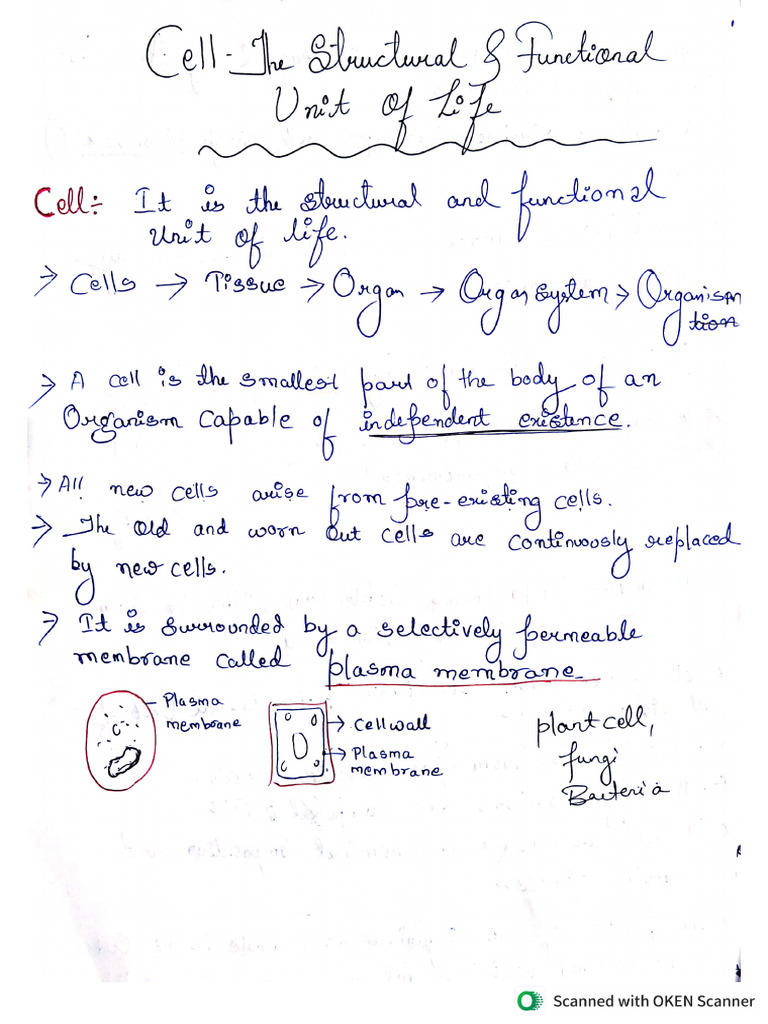 Cell - The Structural & Functional
Unit of Life
Cell:- It is the structural and functional
Unit of life.
→ Cells → Tissue → Organ → Organ System → Organism
tion
→ A cell is the smallest part of the body of an
Organism capable of independent existence.
→ All new cells arise from pre-existing cells.
→ The old and worn out cells are continuously replaced
by new cells.
→ It is surrounded by a selectively permeable
membrane called plasma membrane
Plasma
membrane
→ Cell wall
→ Plasma
membrane
plant cell,
fungi
Bacteria
Scanned with OKEN Scanner